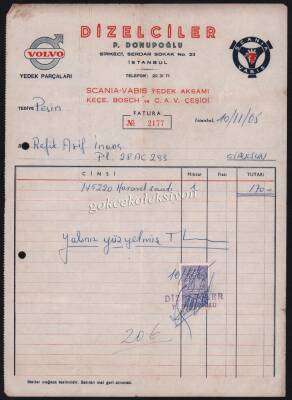 DİZELCİLER
P. DONUPOĞLU
SİRKECİ, SERDAR SOKAK No. 23
İSTANBUL
VOLVO
SCANIA
VABIS
YEDEK PARÇALARI
TELEFON: 22 31 71
SCANIA-VABIS YEDEK AKSAMI
KEÇE, BOSCH ve C. A. V. ÇEŞİDİ
FATURA
№ 2177
TEDİYE Peşin
İstanbul, 10/11/65
Refik Asif
Pl. 28 AC 293
CİNSİ
Miktar
Fiatı
TUTARI
145220
1
170 —
gokcekoleksiyon
Yalnız yüzyetmiş TL
DİZELCİLER
20 €
Mallar mağaza teslimidir. Satılan mal geri alınmaz.